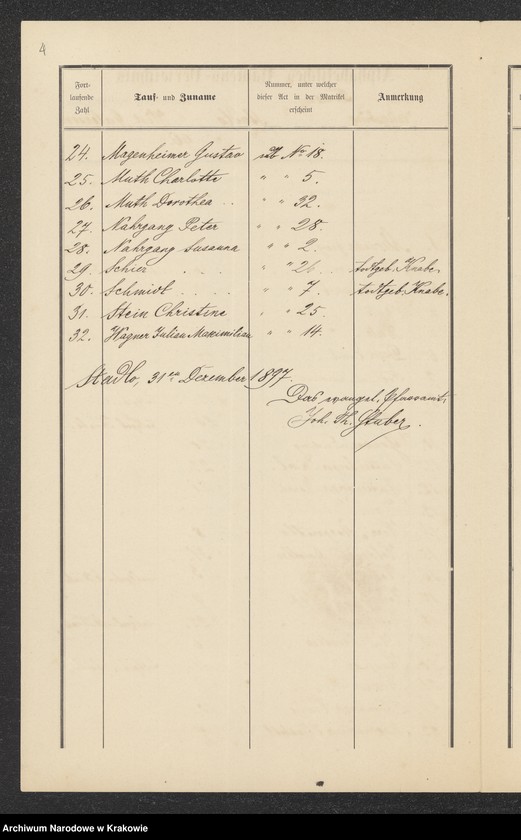 4
Fort-
laufende
Zahl
Tauf- und Zuname
Nummer, unter welcher
dieser Act in der Matrikel
erscheint
Anmerkung
24. Magenheimer Gustav sub No 18.
25. Muth Charlotte " " 5.
26. Muth Dorothea .. " " 32.
27. Nahrgang Peter " " 28.
28. Nahrgang Susanna " " 2.
29. Schier . . . . " " todtgeb. Knabe.
30. Schmidt . . . . " " 7. todtgeb. Knabe.
31. Stein Christine " " 25.
32. Wagner Julian Maximilian " " 14.
Stadlo, 31en Dezember 1897.
Das evangel. Pfarramt:
Joh. Th.
Archiwum Narodowe w Krakowie